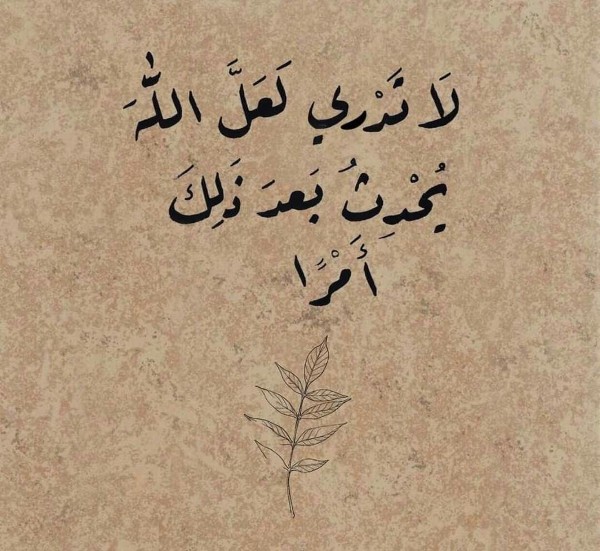 لَا تَدْري لَعَلَّ اللَّهَ
يُحْدِثُ بَعدَ ذَلِكَ
أَمْرًا